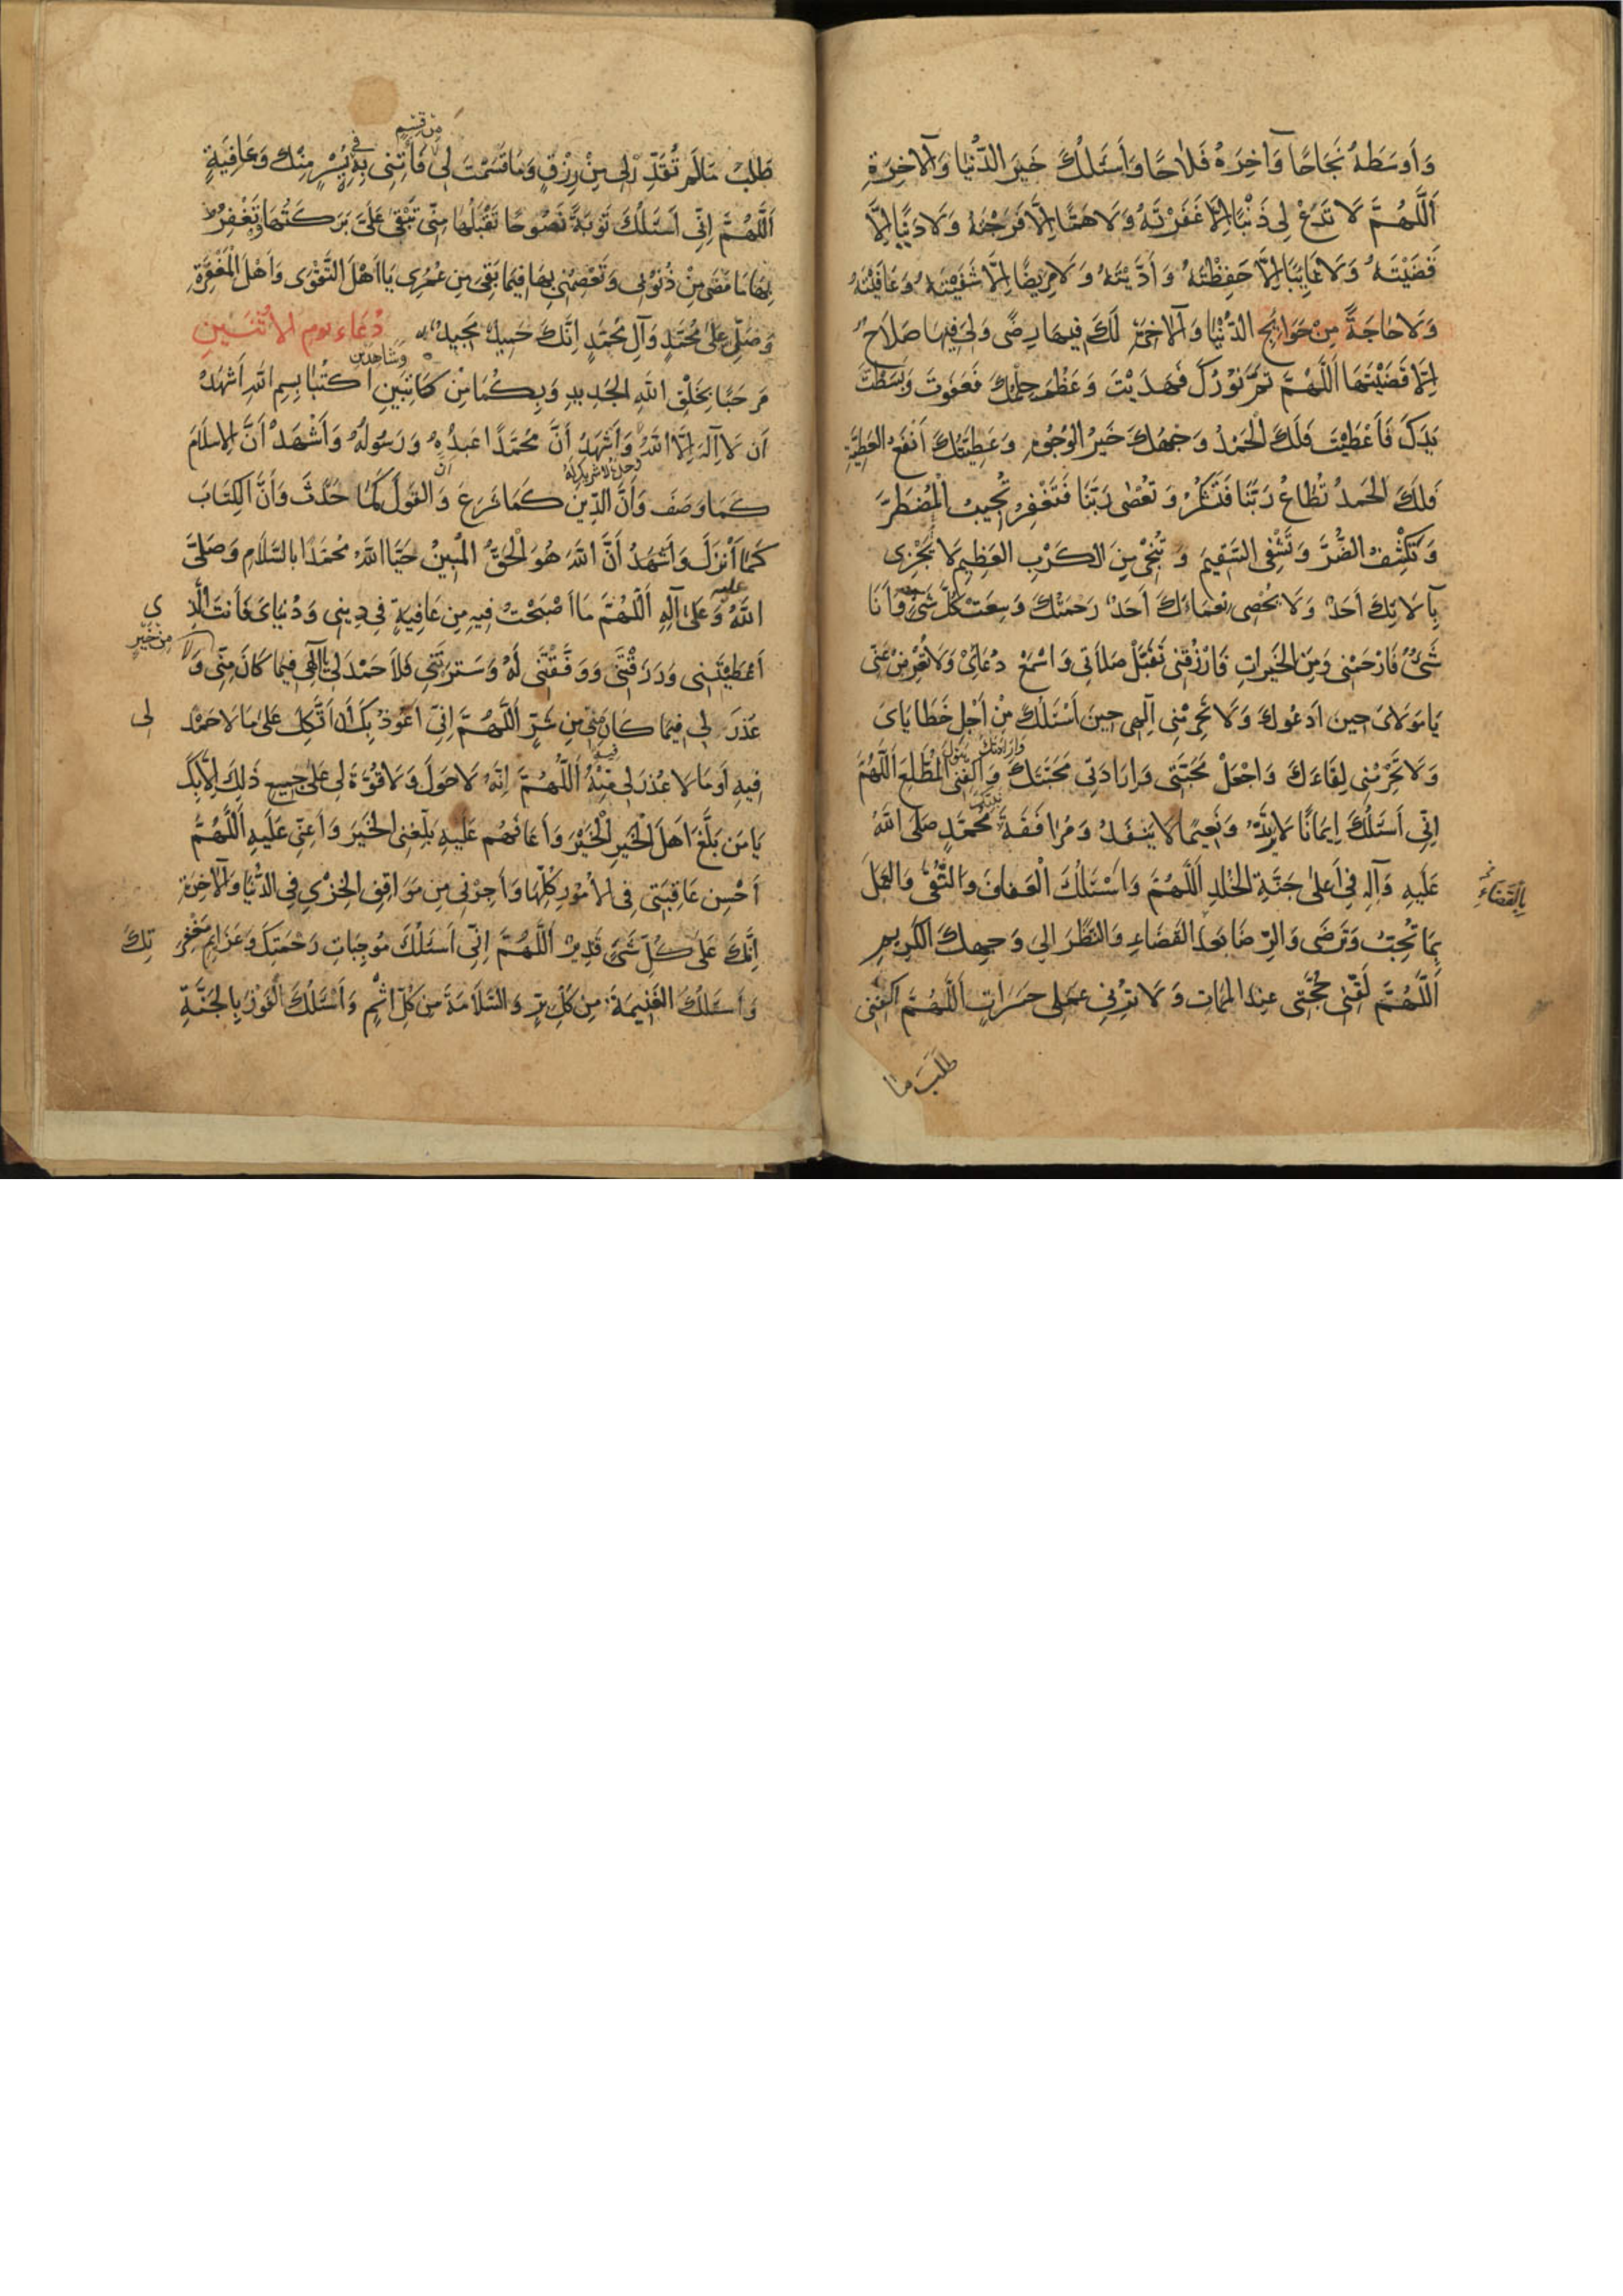 وَأَوسَطَهُ نَجَاحًا وَآخِرَهُ فَلَاحًا وَأَسَئَلُكَ خَيرَ الدُّنْيَا وَالآخِرَةِ
اَللّهُمَّ لَا تَدَعْ لِي ذَنْبًا إِلَّا غَفَرْتَهُ وَلَا هَمًّا إِلَّا فَرَّجْتَهُ وَلَا دَيْنًا إِلَّا
قَضَيْتَهُ وَلَا غَائِبًا إِلَّا حَفِظْتَهُ وَأَدَّيْتَهُ وَلَا مَرِيضًا إِلَّا شَفَيْتَهُ وَعَافَيْتَهُ
وَلَا حَاجَةً مِنْ حَوَائِجِ الدُّنْيَا وَالآخِرَةِ لَكَ فِيهَا رِضًى وَلِيَ فِيهَا صَلَاحٌ
إِلَّا قَضَيْتَهَا اَللّهُمَّ تَمَّ نُورُكَ فَهَدَيْتَ وَعَظُمَ حِلْمُكَ فَعَفَوْتَ وَبَسَطْتَ
يَدَكَ فَأَعْطَيْتَ فَلَكَ الْحَمْدُ وَجْهُكَ خَيْرُ الْوُجُوهِ وَعَطِيَّتُكَ أَنْفَعُ الْعَطِيَّةِ
فَلَكَ الْحَمدُ تُطَاعُ رَبَّنَا فَتَشْكُرُ وَتُعْصٰى رَبَّنَا فَتَغْفِرُ تُجِيبُ الْمُضْطَرَّ
وَتَكْشِفُ الضُّرَّ وَتَشْفِي السَّقِيمَ وَتُنْجِي مِنَ الْكَرْبِ الْعَظِيمِ لَا يَجْزِي
بِآلَائِكَ أَحَدٌ وَلَا يُحْصِي نَعْمَاءَكَ أَحَدٌ رَحْمَتُكَ وَسِعَتْ كُلَّ شَيْءٍ وَأَنَا
شَيْءٌ فَارْحَمْنِي وَمِنَ الْخَيرَاتِ فَارْزُقْنِي تَقَبَّلْ صَلَاتِي وَاسْمَعْ دُعَائِي وَلَا تُعْرِضْ عَنِّي
يَا مَوْلَايَ حِينَ اَدْعُوكَ وَلَا تَحْرِمْنِي اِلٰهِي حِينَ أَسْئَلُكَ مِنْ أَجْلِ خَطَايَايَ
وَلَا تَحْرِمْنِي لِقَاءَكَ وَاجْعَلْ مَحَبَّتِي وَإِرَادَتِي مَحَبَّتَكَ وَاكْفِنِي الْمُطَّلَعِ اَللّهُمَّ
وَإِرَادَتَكَ هَوْلَ
اِنِّي أَسْئَلُكَ إِيمَانًا لَا يَرْتَدُّ وَنَعِيمًا لَا يَنْفَدُ وَمُرَافَقَةَ مُحَمَّدٍ صَلَّى اللهُ
عَلَيهِ وَآلِهِ فِي أَعْلَى جَنَّةِ الْخُلْدِ اَللّهُمَّ وَأَسْئَلُكَ الْعَفَافَ وَالتُّقَى وَالْعَمَلَ
بِالْقَضَاءِ
بِمَا تُحِبُّ وَتَرْضَى وَالرِّضَا بَعدَ الْقَضَاءِ وَالنَّظَرَ إِلَى وَجْهِكَ الْكَرِيمِ
اَللّهُمَّ لَقِّنِّي حُجَّتِي عِندَ الْمَمَاتِ وَلَا تُرِنِي عَمَلِي حَسَرَاتٍ اَللّهُمَّ اكْفِنِي
طَلَبَ مَا
مِن قِسَمٍ
طَلَبَ مَا لَمْ تُقَدِّرْ لِي مِنْ رِزْقٍ وَمَا قَسَمْتَ لِي فَأْتِنِي بِهِ فِي يُسْرٍ مِنْكَ وَعَافِيَةٍ
اَللّهُمَّ اِنِّي أَسَئَلُكَ تَوْبَةً نَصُوحًا تَقْبَلُهَا مِنِّي تَبْقَى عَلَيَّ بَرَكَتُهَا وَتَغْفِرُ
بِهَا مَا مَضَى مِنْ ذُنُوبِي وَتَعْصِمُنِي بِهَا فِيمَا بَقِيَ مِنْ عُمُرِي يَا اَهْلَ التَّقْوَى وَأَهْلَ الْمَغْفِرَةِ
وَصَلِّ عَلَى مُحَمَّدٍ وَآلِ مُحَمَّدٍ اِنَّكَ حَمِيدٌ مَجِيدٌ دُعَاء يوم الاثنَينِ
وَشَاهِدَيْنِ
مَرحَبًا بِخَلْقِ اللهِ الْجَدِيدِ وَبِكُمَا مِنْ كَاتِبَينِ اكْتُبَا بِسمِ اللهِ أَشْهَدُ
اَن لَا اِلٰهَ اِلَّا اللهُ وَأَشْهَدُ أَنَّ مُحَمَّدًا عَبدُهُ وَرَسُولُهُ وَأَشْهَدُ أَنَّ الْاِسْلَامَ
وحدهُ لا شريك له
كَمَا وَصَفَ وَأَنَّ الدِّينَ كَمَا شَرَعَ وَأَنَّ الْقَوْلَ كَمَا حَدَّثَ وَأَنَّ الْكِتَابَ
كَمَا أَنْزَلَ وَأَشْهَدُ أَنَّ اللهَ هُوَ الْحَقُّ الْمُبِينُ حَيَّا اللهُ مُحَمَّدًا بِالسَّلَامِ وَصَلَّى
اللهُ عليه وَعَلَى آلِهِ اَللّهُمَّ مَا اَصْبَحْتُ فِيهِ مِن عَافِيَةٍ فِي دِينِي وَدُنْيَايَ فَأَنتَ الَّذِي
مِن خَيْرٍ
أَعْطَيْتَنِي وَرَزَقْتَنِي وَوَفَّقْتَنِي لَهُ وَسَتَرْتَنِي فَلَا حَمْدَ لِي يَا اِلٰهِي فِيمَا كَانَ مِنِّي وَلَا
عُذرَ لِي فِيمَا كَانَ مِنِّي مِن شَرٍّ اَللّهُمَّ اِنِّي أَعُوذُ بِكَ أَن اَتَّكِلَ عَلَى مَا لَا حَمْدَ لِي
فِيهِ اَو مَا لَا عُذرَ لِي فِيهِ اَللّهُمَّ اِنَّهُ لَا حَولَ وَلَا قُوَّةَ لِي عَلَى جَمِيعِ ذَلِكَ اِلَّا بِكَ
يَا مَن بَلَّغَ اَهلَ الْخَيرِ الْخَيْرَ وَأَعَانَهُم عَلَيهِ بَلِّغنِي الْخَيرَ وَأَعِنِّي عَلَيهِ اَللّهُمَّ
أَحْسِن عَاقِبَتِي فِي الْأُمُورِ كُلِّهَا وَأَجِرْنِي مِن مَوَاقِفِ الْخِزْيِ فِي الدُّنْيَا وَالآخِرَةِ
اِنَّكَ عَلَى كُلِّ شَيْءٍ قَدِيرٌ اَللّهُمَّ اِنِّي أَسْئَلُكَ مُوجِبَاتِ رَحْمَتِكَ وَعَزَائِمَ مَغْفِرَتِكَ
وَأَسْئَلُكَ الْغَنِيمَةَ مِن كُلِّ بِرٍّ وَالسَّلَامَةَ مِن كُلِّ اِثْمٍ وَأَسْئَلُكَ الْفَوْزَ بِالْجَنَّةِ